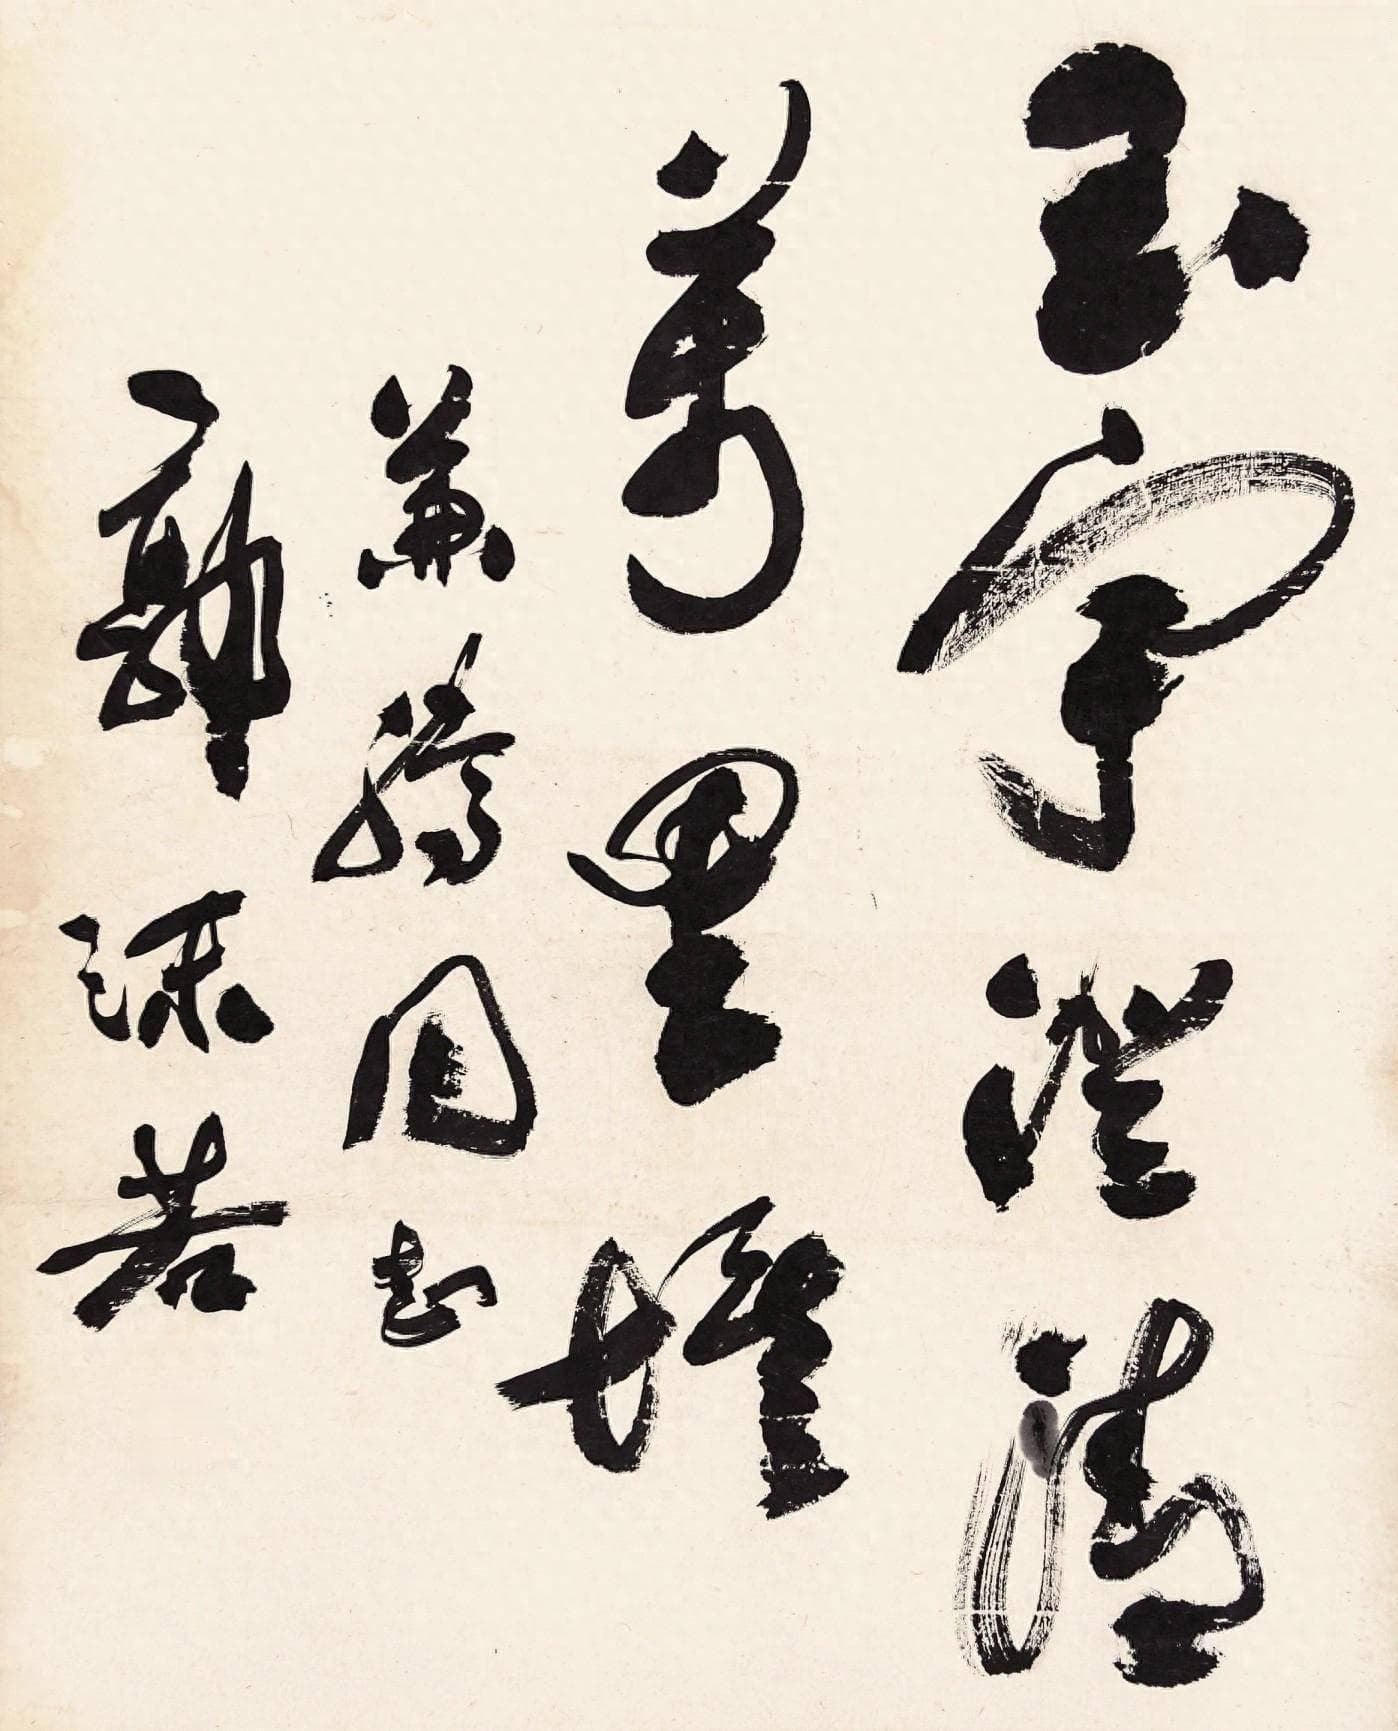 玉宇澄清
萬里埃
兼同志
郭沫若